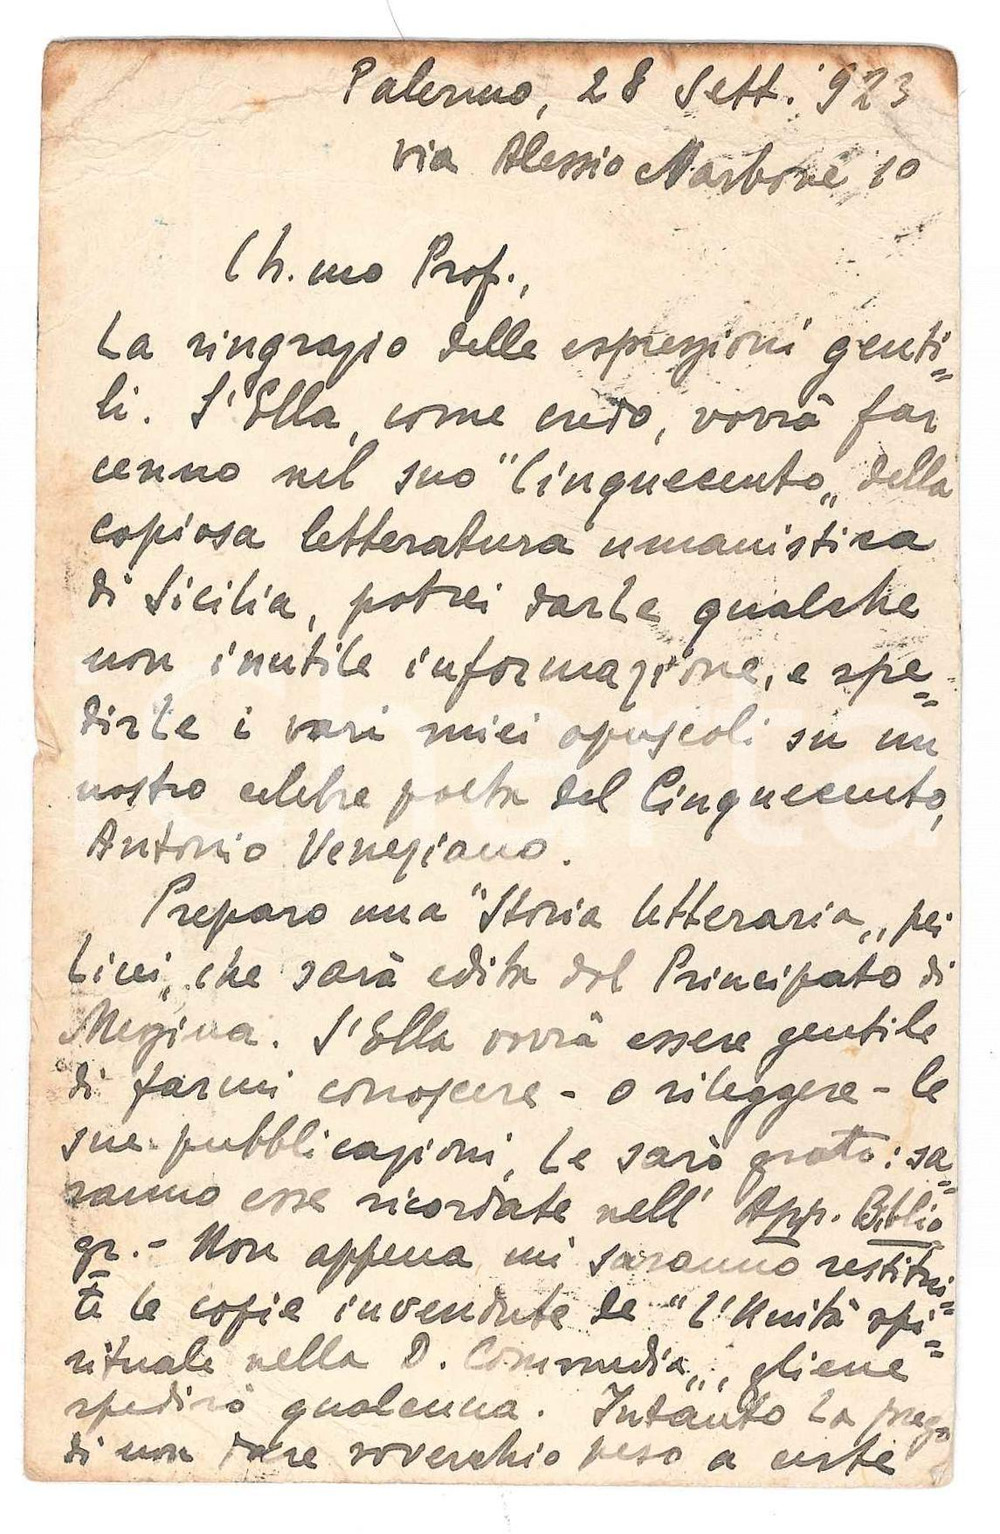 Palermo, 28 Sett. '923
via Alessio Narbone 10
Ch.mo Prof.,
La ringrazio delle espressioni genti=
li. S'Ella, come credo, vorrà far
cenno nel suo "Cinquecento„ della
copiosa letteratura umanistica
di Sicilia, potrei darLe qualche
non inutile informazione, e spe=
dirLe i vari miei opuscoli su un
nostro celebre poeta del Cinquecento,
Antonio Veneziano.
Preparo una "Storia letteraria„ pei
Licei, che sarà edita dal Principato di
Messina. S'Ella vorrà essere gentile
di farmi conoscere - o rileggere - le
sue pubblicazioni, Le sarò grato: sa=
ranno esse ricordate nell' App. Biblio
gr. - Non appena mi saranno restitui=
te le copie invendute de "L'Unità spi=
rituale nella D. Commedia„, gliene
spedirò qualcuna. Intanto La prego
di non dare soverchio peso a certe